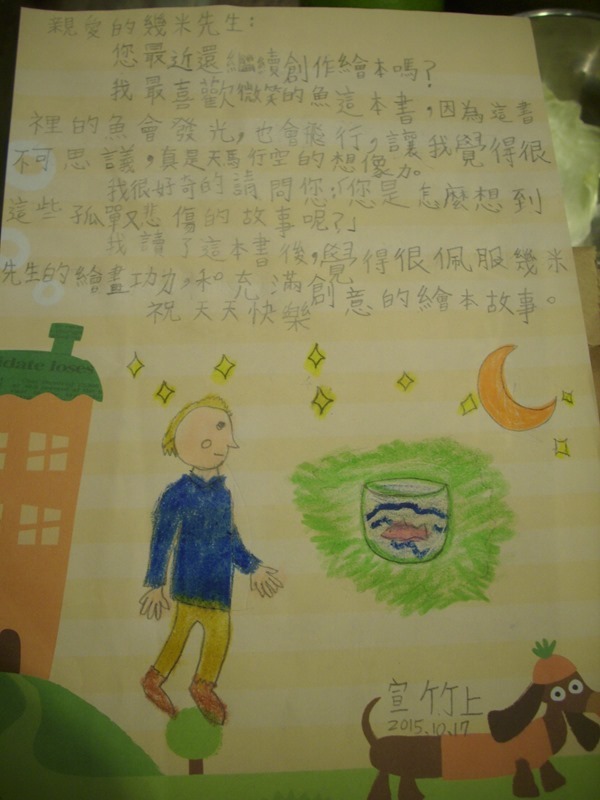 親愛的幾米先生:
您最近還繼續創作繪本嗎?
我最喜歡微笑的魚這本書,因為這書
裡的魚會發光,也會飛行,讓我覺得很
不可思議,真是天馬行空的想像力。
我很好奇的請問您:「您是怎麼想到
這些孤單又悲傷的故事呢?」
我讀了這本書後,覺得很佩服幾米
先生的繪畫功力,和充滿創意的繪本故事。
祝天天快樂
宣竹上
2015.10.17